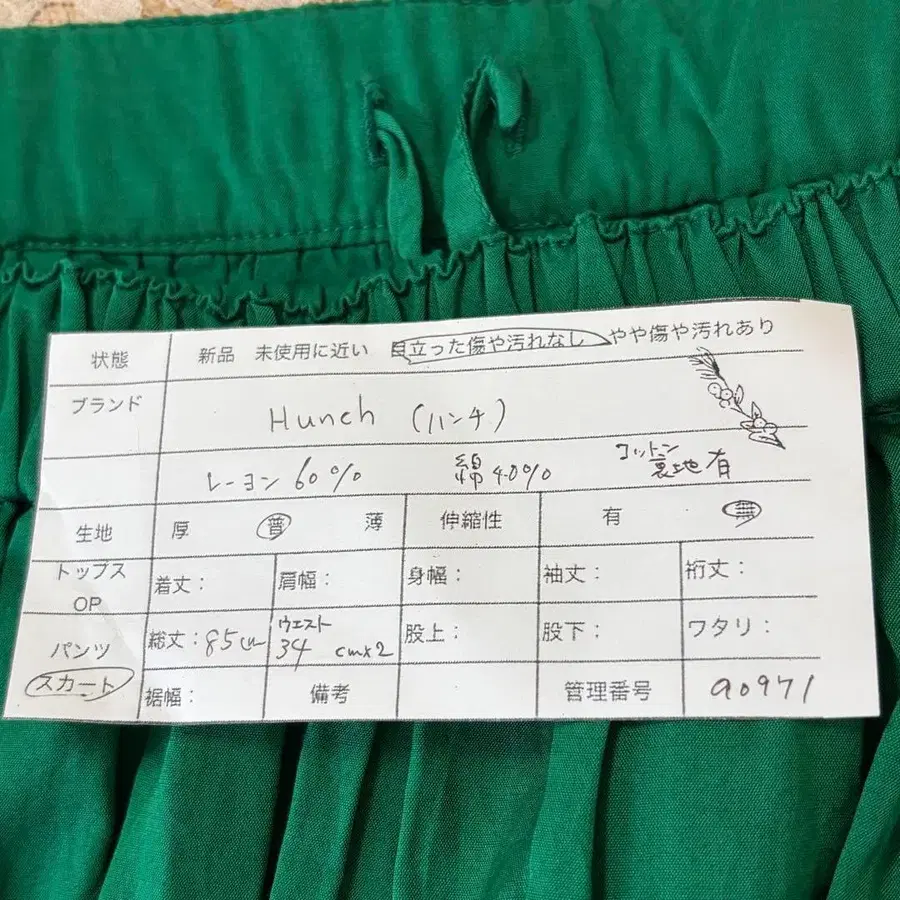 状態 新品 未使用に近い 目立った傷や汚れなし やや傷や汚れあり
ブランド Hunch (ハンチ)
レーヨン 60% 綿 40% コットン裏地有
生地 厚 普 薄 伸縮性 有 無
トップス OP 着丈： 肩幅： 身幅： 袖丈： 裄丈：
パンツ スカート 総丈：85cm ウエスト 34 cm×2 股上： 股下； ワタリ：
裾幅： 備考 管理番号 a0971